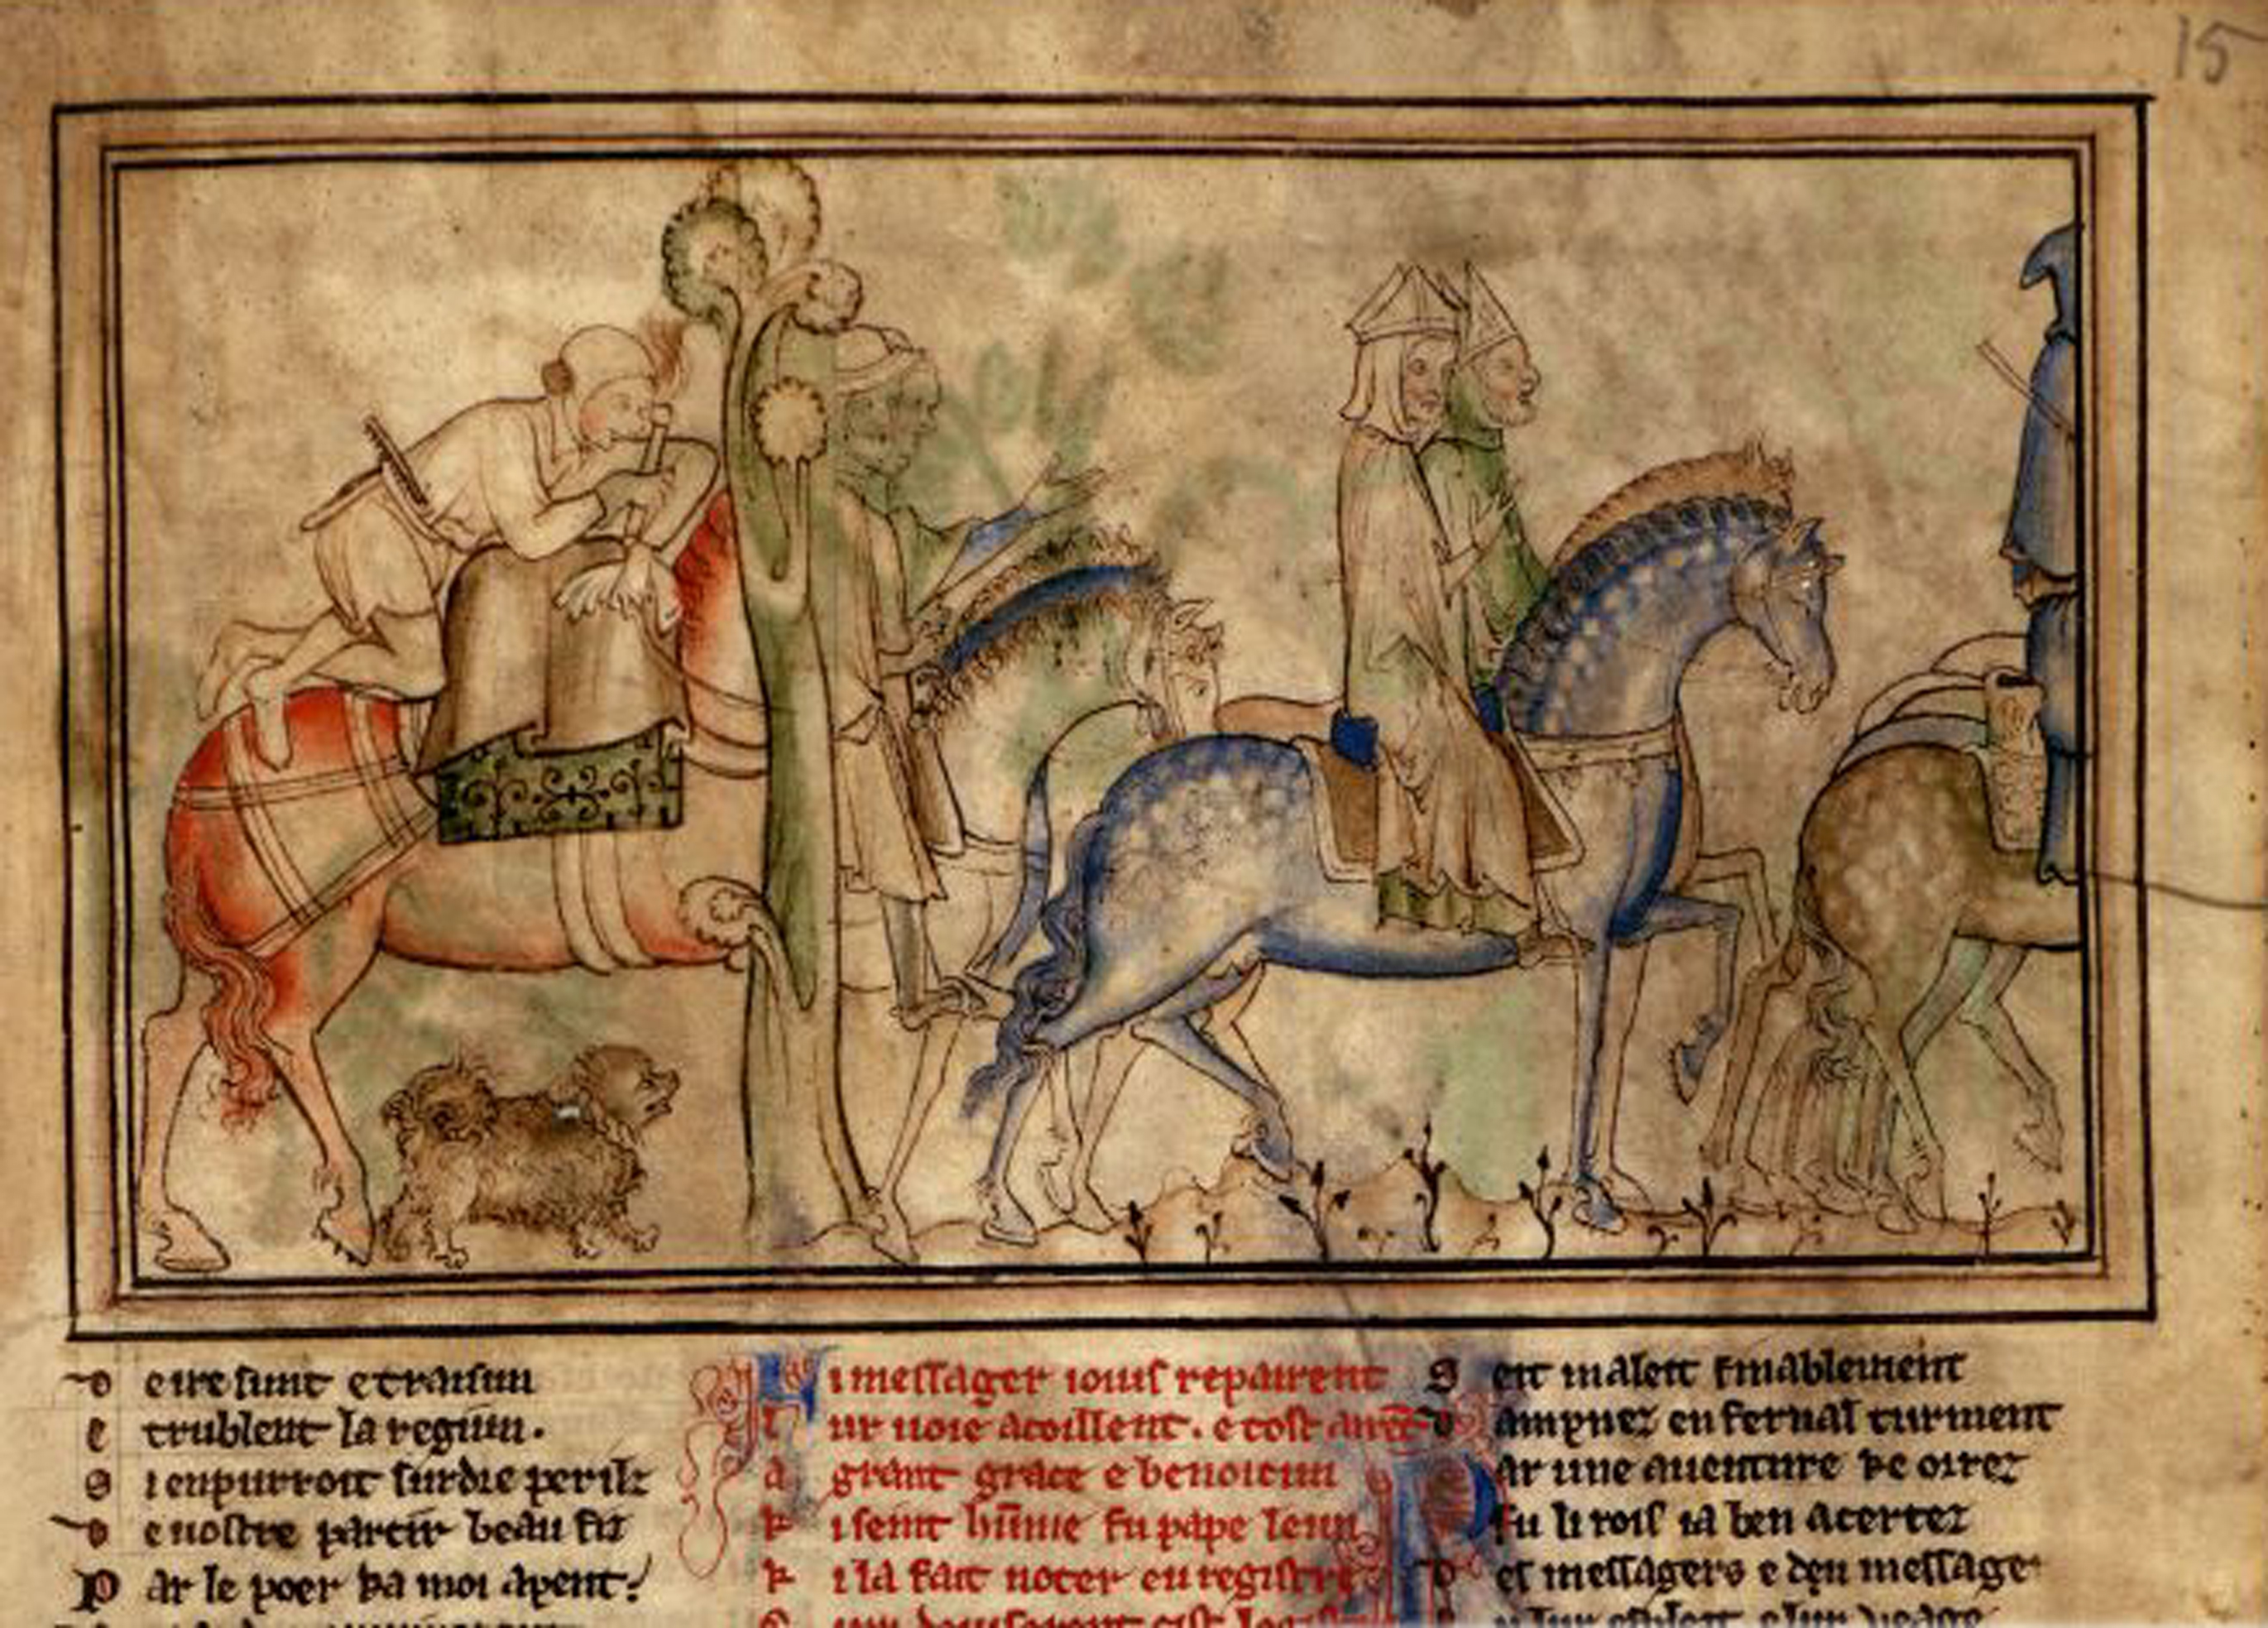 15
D e ire sunt e traisun
E trublent la regiun.
S i en purroit surdre perilz
D e nostre partir beau fiz
P ar le poer ka moi apent.
L i messager iouis repairent
L ur uoie acoillent. e tost
A grant grace e beneicun
K i seint hume fu pape leun
K i la fait noter en registre
S eit maleit finablement
D ampnez en fernal turment
P ar une auenture ke oirez
F u li rois ia ben acertez
D es messagers e den message